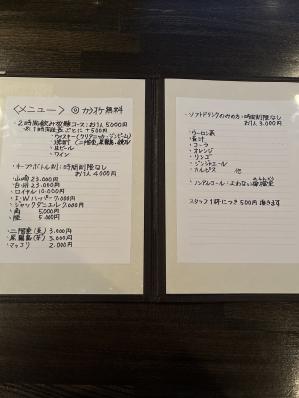 〈メニュー〉 ◎ カラオケ無料
・2時間飲み放題コース:お1人5000円
※1時間延長ごとに+500円
・ウィスキー(クリアニッカ・ジンビーム)
・焼酎(二階堂,黒霧島,
・生ビール
・ワイン
・キープボトル制:時間制限なし
お1人4000円
・山崎 23.000円
・白州 23.000円
・ロイヤル 10.000円
・I.W.ハーパー 9.000円
・ジャックダニエル 9.000円
・角 5.000円
・陸 5.000円
・二階堂(麦) 3.000円
・黒霧島(芋) 3.000円
・マッコリ 2.000円
・ソフトドリンクのみの方:時間制限なし
お1人3.000円
・ウーロン茶
・緑汁
・コーラ
・オレンジ
・リンゴ
・ジンジャエール
・カルピス 他
・ノンアルコール・よわない梅酒
スタッフ1杯につき500円頂きます